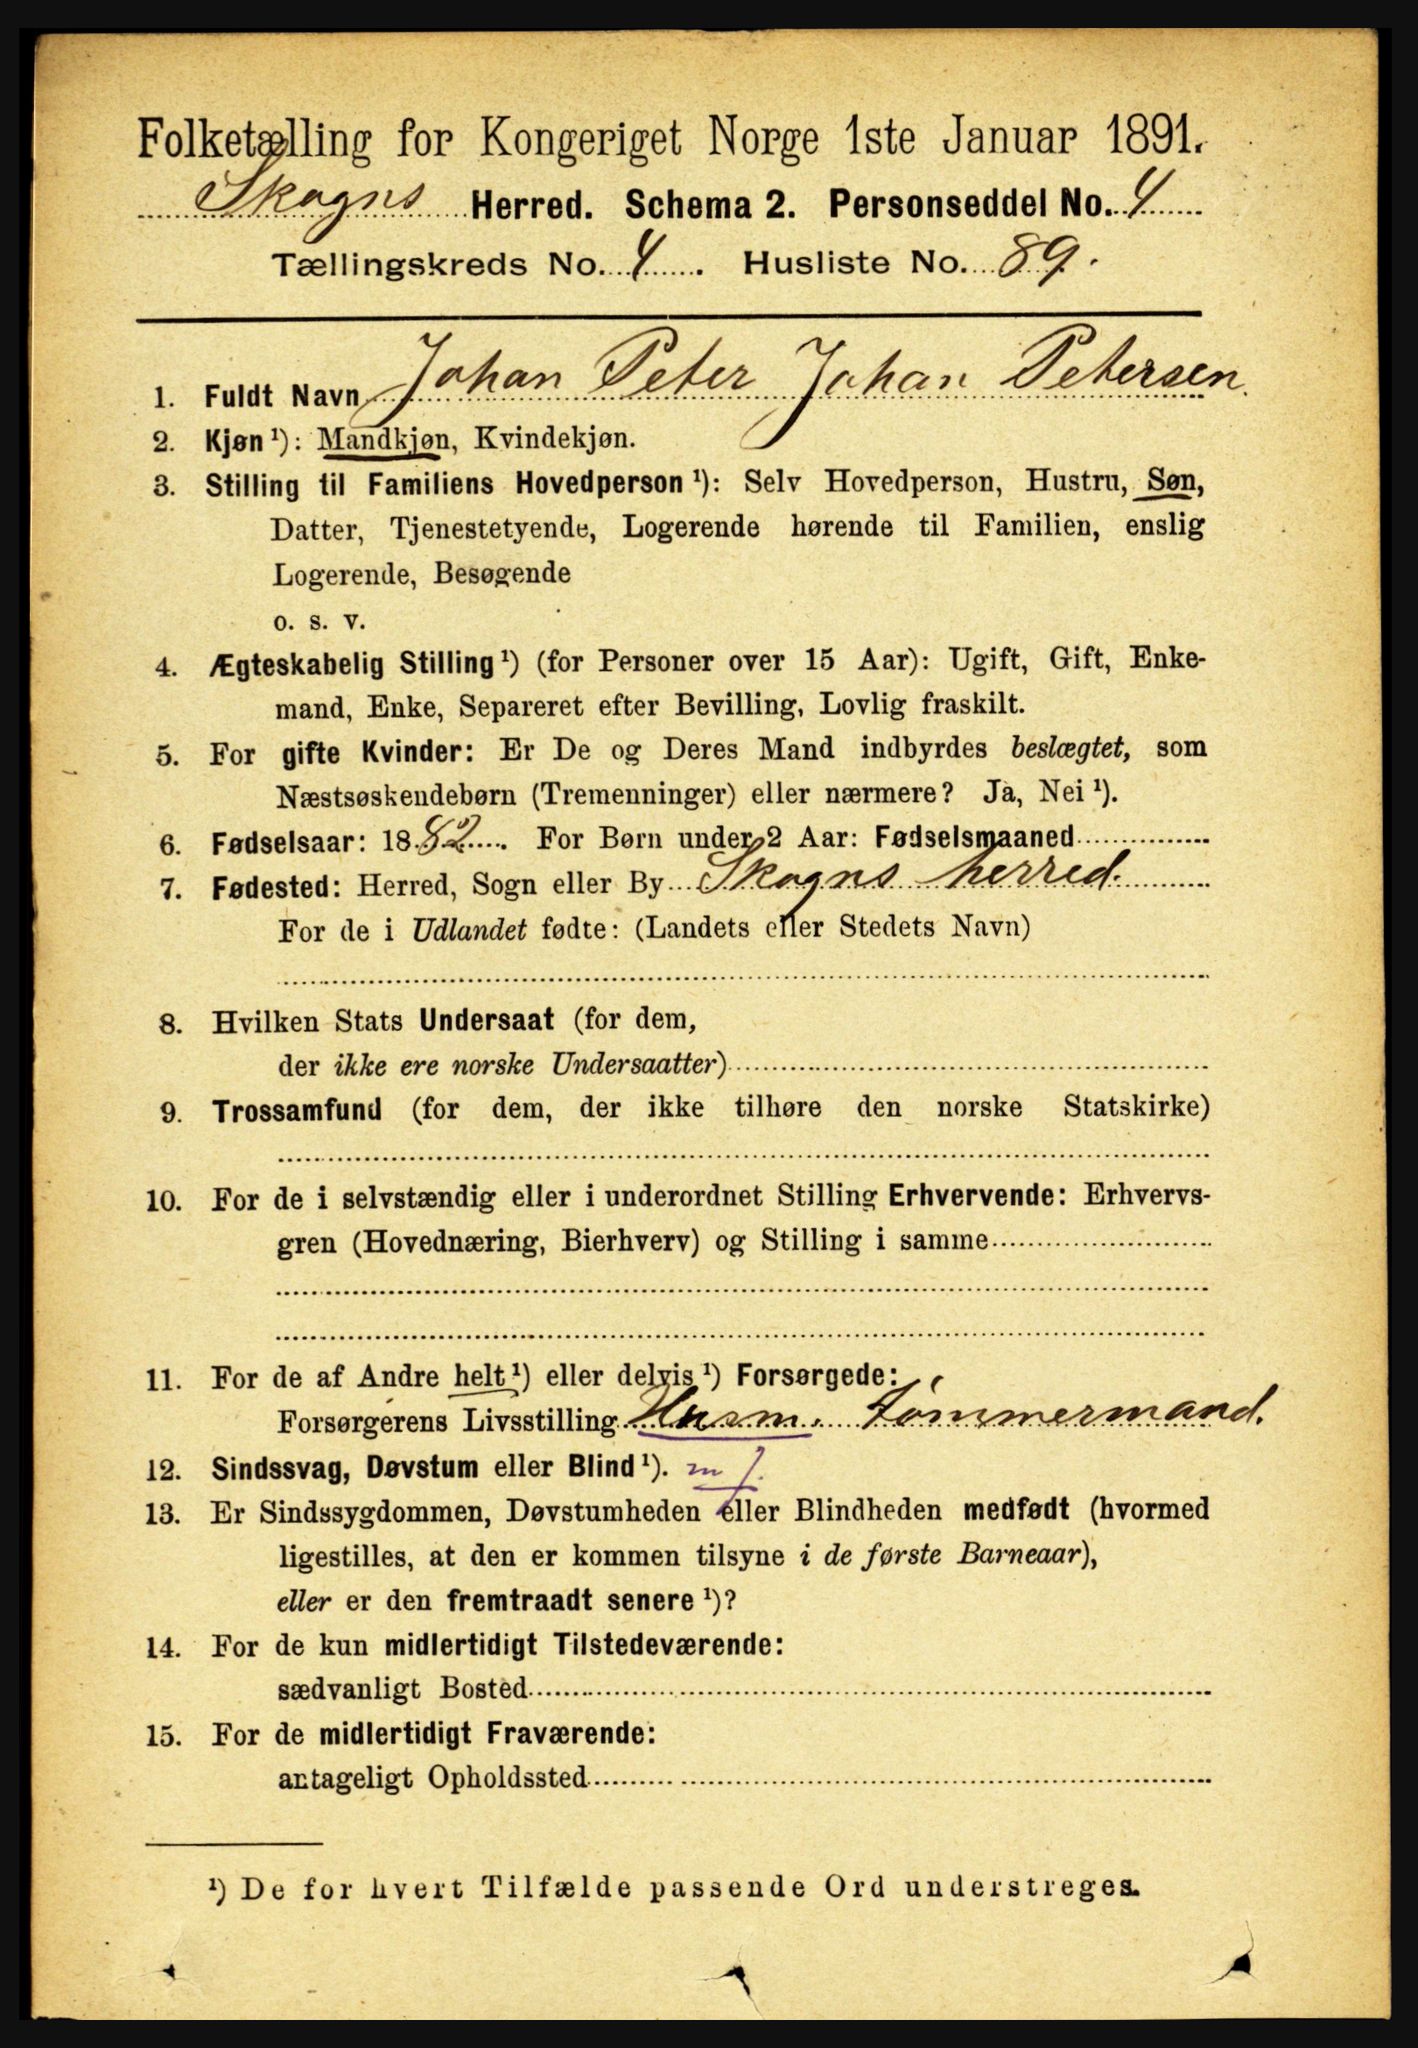 Folketælling for Kongeriget Norge 1ste Januar 1891.
Skogns Herred. Schema 2. Personseddel No. 4
Tællingskreds No. 4. Husliste No. 89.
1. Fuldt Navn Johan Peter Johan Petersen.
2. Kjøn ¹): Mandkjøn, Kvindekjøn.
3. Stilling til Familiens Hovedperson ¹): Selv Hovedperson, Hustru, Søn,
Datter, Tjenestetyende, Logerende hørende til Familien, enslig
Logerende, Besøgende
o. s. v.
4. Ægteskabelig Stilling ¹) (for Personer over 15 Aar): Ugift, Gift, Enke-
mand, Enke, Separeret efter Bevilling, Lovlig fraskilt.
5. For gifte Kvinder: Er De og Deres Mand indbyrdes beslægtet, som
Næstsøskendebørn (Tremenninger) eller nærmere? Ja, Nei ¹).
6. Fødselsaar: 1882. For Børn under 2 Aar: Fødselsmaaned
7. Fødested: Herred, Sogn eller By Skogns herred.
For de i Udlandet fødte: (Landets eller Stedets Navn)
8. Hvilken Stats Undersaat (for dem,
der ikke ere norske Undersaatter)
9. Trossamfund (for dem, der ikke tilhøre den norske Statskirke)
10. For de i selvstændig eller i underordnet Stilling Erhvervende: Erhvervs-
gren (Hovednæring, Bierhverv) og Stilling i samme
11. For de af Andre helt ¹) eller delvis ¹) Forsørgede:
Forsørgerens Livsstilling Husm. Tømmermand.
12. Sindssvag, Døvstum eller Blind ¹).
13. Er Sindssygdommen, Døvstumheden eller Blindheden medfødt (hvormed
ligestilles, at den er kommen tilsyne i de første Barneaar),
eller er den fremtraadt senere ¹)?
14. For de kun midlertidigt Tilstedeværende:
sædvanligt Bosted
15. For de midlertidigt Fraværende:
antageligt Opholdssted
¹) De for hvert Tilfælde passende Ord understreges.